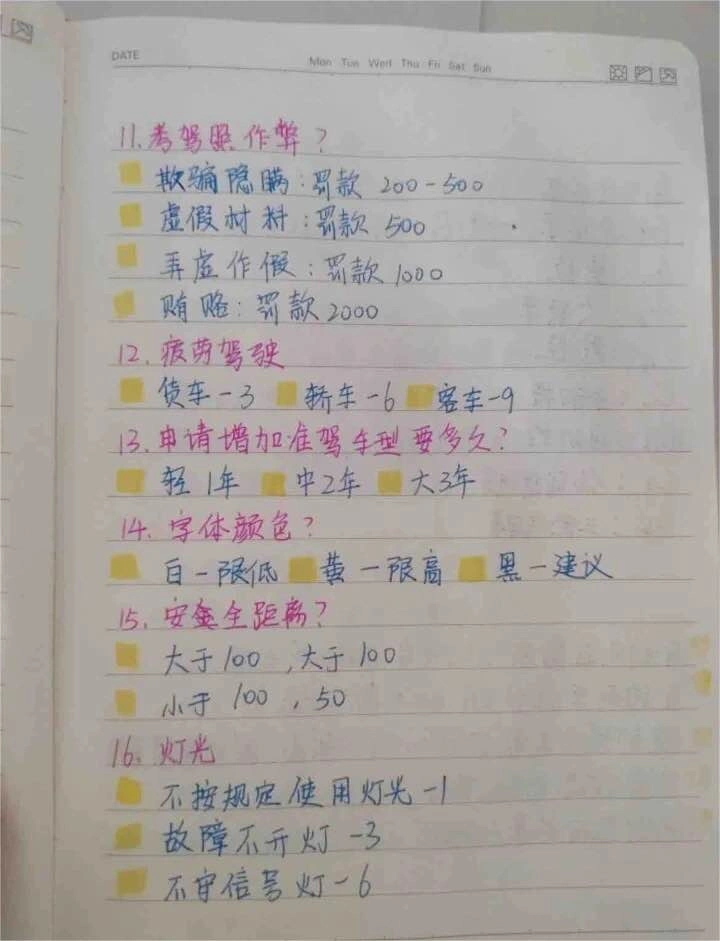 DATE
Mon Tue Wed Thu Fri Sat Sun
11.考驾照作弊?
欺骗隐瞒:罚款 200-500
虚假材料:罚款 500
弄虚作假:罚款 1000
贿赂:罚款 2000
12.疲劳驾驶
货车-3 轿车-6 客车-9
13.申请增加准驾车型要多久?
轻1年 中2年 大3年
14.字体颜色?
白-限低 黄-限高 黑-建议
15.安全距离?
大于100,大于100
小于100,50
16.灯光
不按规定使用灯光-1
故障不开灯-3
不守信号灯-6